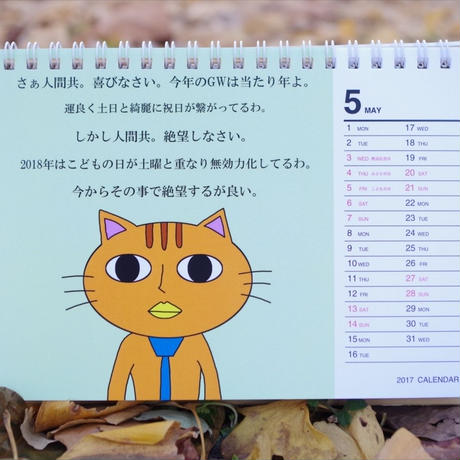 さぁ人間共。喜びなさい。今年のGWは当たり年よ。
運良く土日と綺麗に祝日が繋がってるわ。
しかし人間共。絶望しなさい。
2018年はこどもの日が土曜と重なり無効力化してるわ。
今からその事で絶望するが良い。
5 MAY
1 MON
2 TUE
3 WED
4 THU
5 FRI
6 SAT
7 SUN
8 MON
9 TUE
10 WED
11 THU
12 FRI
13 SAT
14 SUN
15 MON
16 TUE
17 WED
18 THU
19 FRI
20 SAT
21 SUN
22 MON
23 TUE
24 WED
25 THU
26 FRI
27 SAT
28 SUN
29 MON
30 TUE
31 WED
2017 CALENDAR